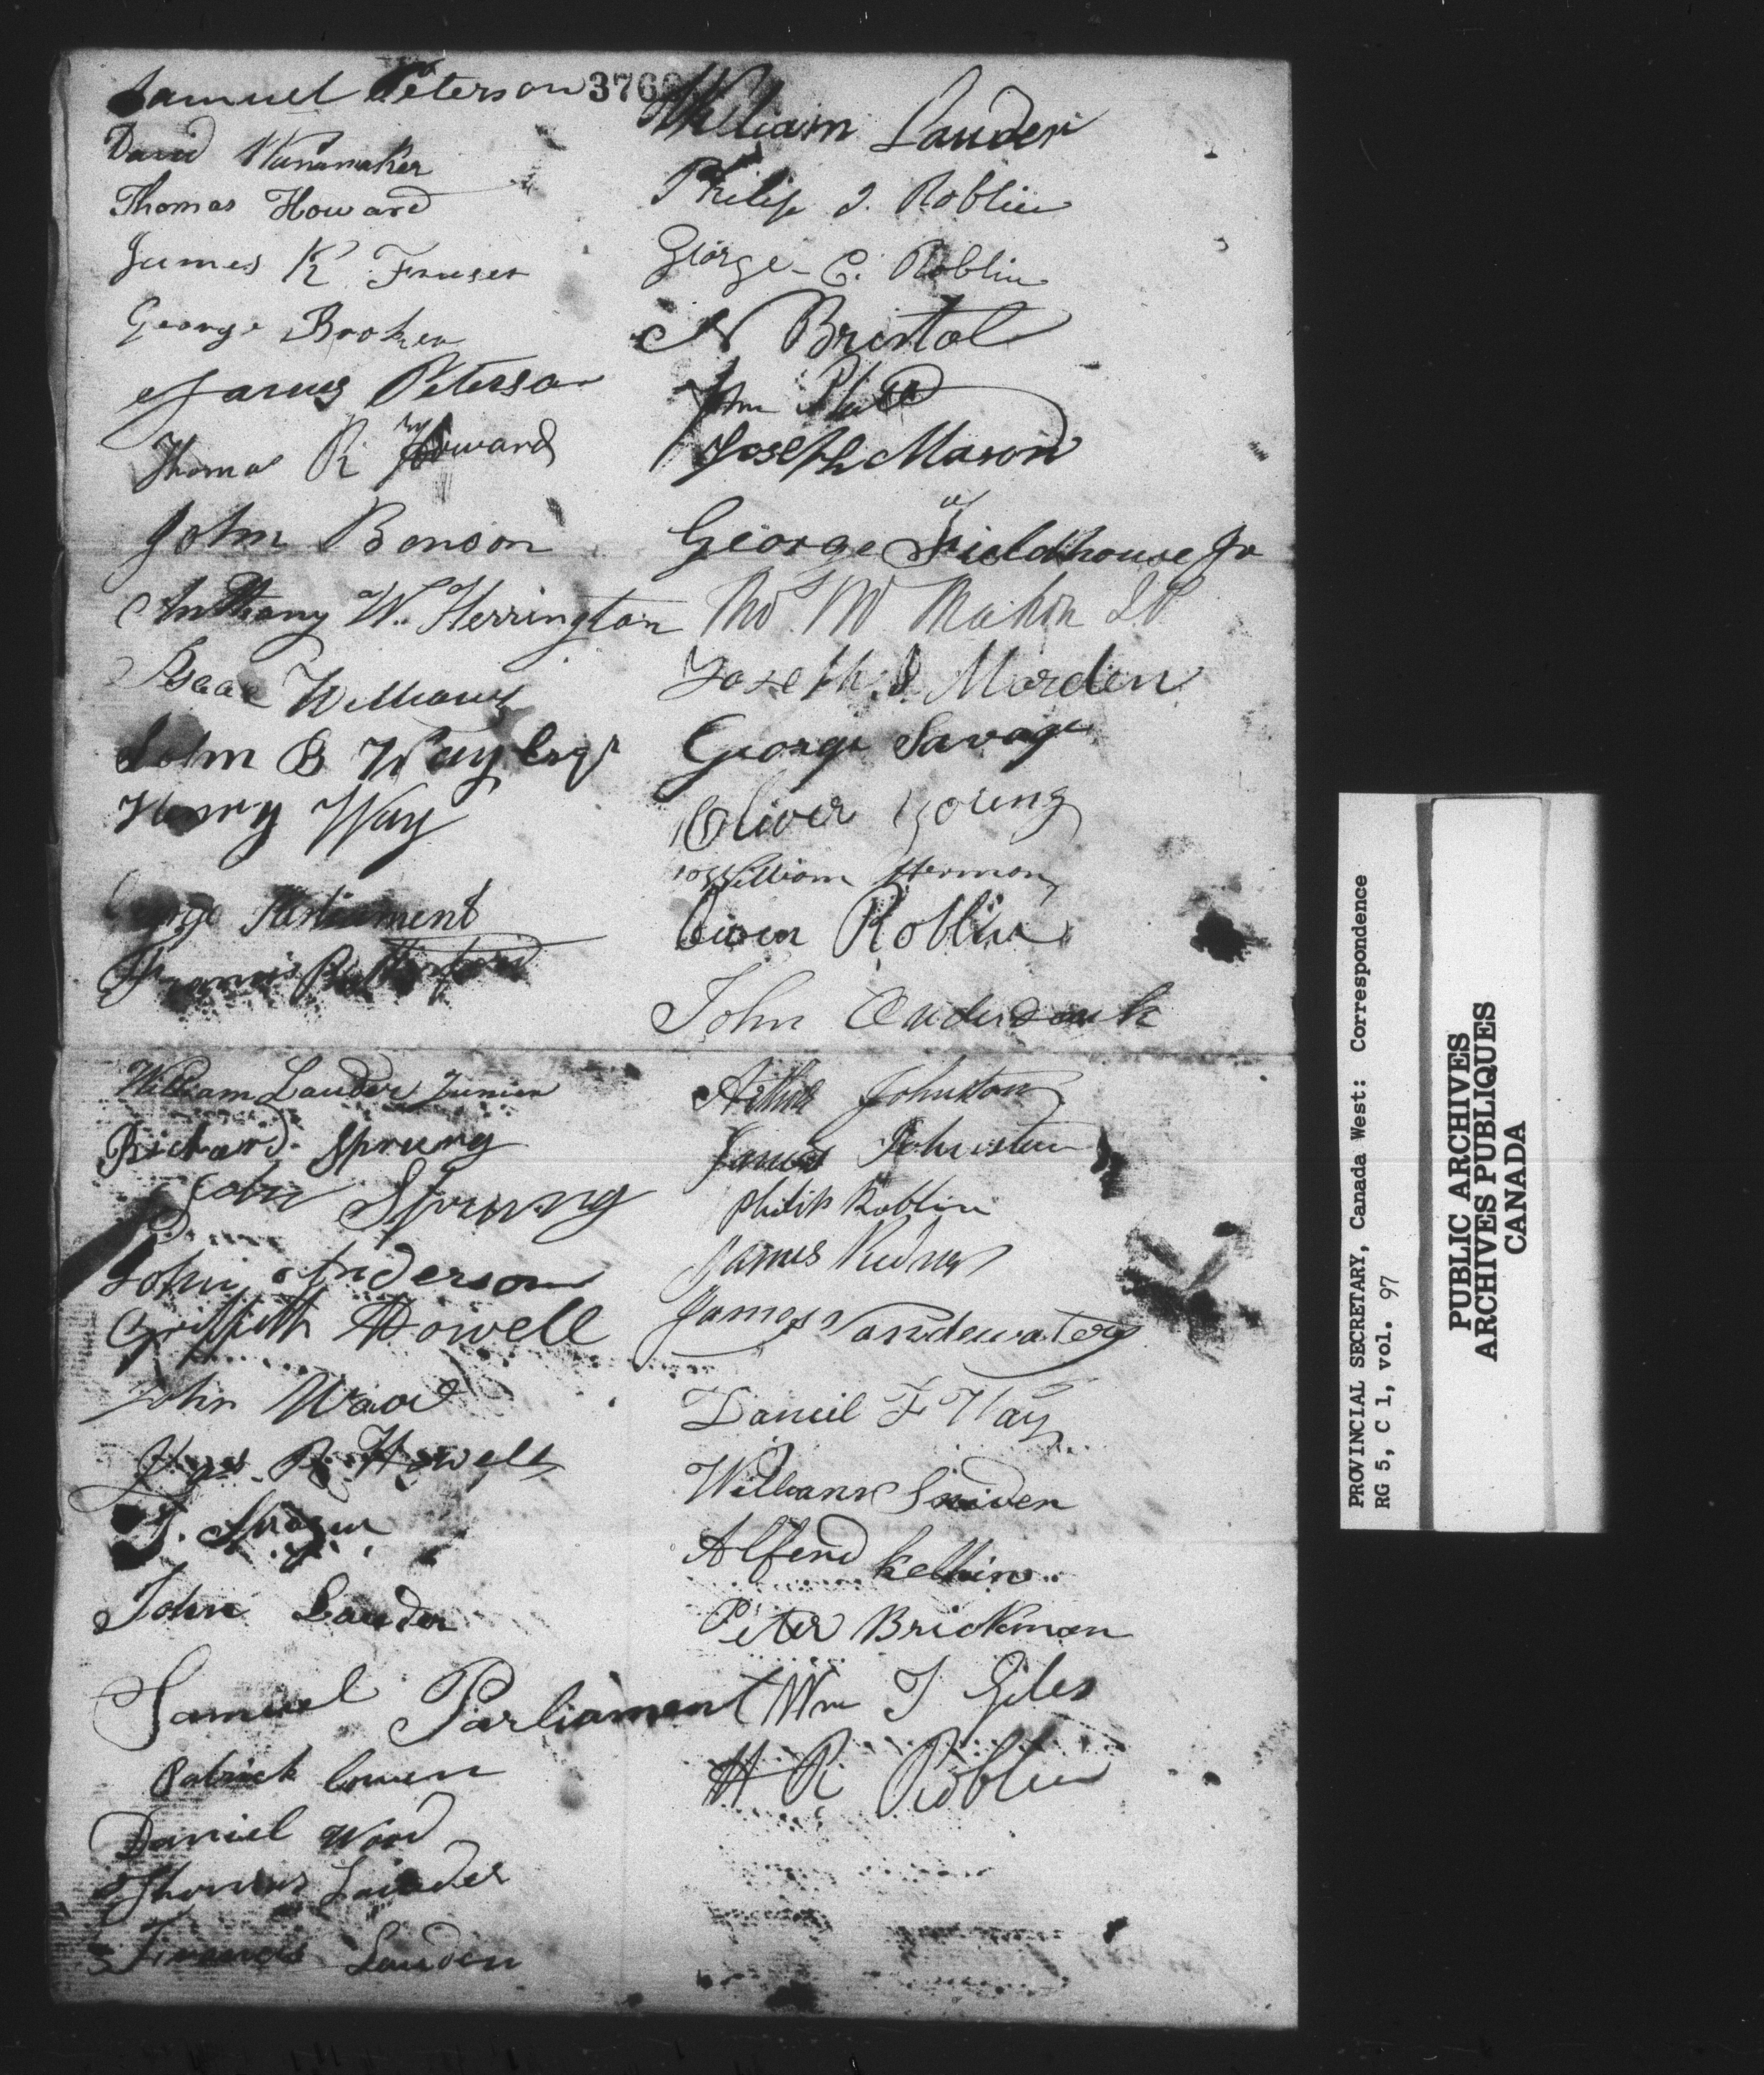 Samuel Peterson
David Wanamaker
Thomas Howard
James R Fraser
George Brooker
James Peterson
Thomas R Howard
John Benson
Anthony W. Herrington
Isaac Williams
John B Way Esqr
Henry Way
George Parliament
Francis
William Lauder Junior
Richard Sprung
John Sprung
John Anderson
Griffith Howell
John Wood
Jas. R Howell
J.
John Lauder
Samuel Parliament
Patrick Cowen
Daniel Wood
Thomas Lauder
Francis Lauder
376
William Lauder
Philip J. Roblin
George C. Roblin
N Bristol
Jhn Platt
Joseph Mason
George Fieldhouse Jr
Joseph Morden
George Savage
Oliver Young
William Hermon
Owen Roblin
John Onderdonk
Arthur Johnston
James Johnston
Philip Roblin
James
James Vandewaters
Daniel F Way
William Snider
Alferd
Peter Brickman
Wm J Giles
H R Roblin
PROVINCIAL SECRETARY, Canada West: Correspondence
RG 5, C 1, vol. 97
PUBLIC ARCHIVES
ARCHIVES PUBLIQUES
CANADA